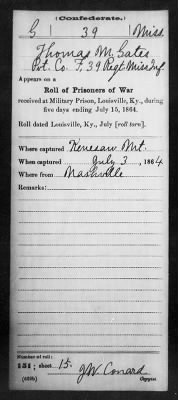 (Confederate.)
G | 39 | Miss.
Thomas M. Gates
Pvt. Co. F, 39 Regt Miss Inf.
Appears on a
Roll of Prisoners of War
received at Military Prison, Louisville, Ky., during
five days ending July 15, 1864.
Roll dated Louisville, Ky., July [roll torn].
Where captured Kenesaw Mt.
When captured July 3, 1864
Where from Nashville
Remarks:
Number of roll:
151; sheet 15
J W Conard
Copyist.